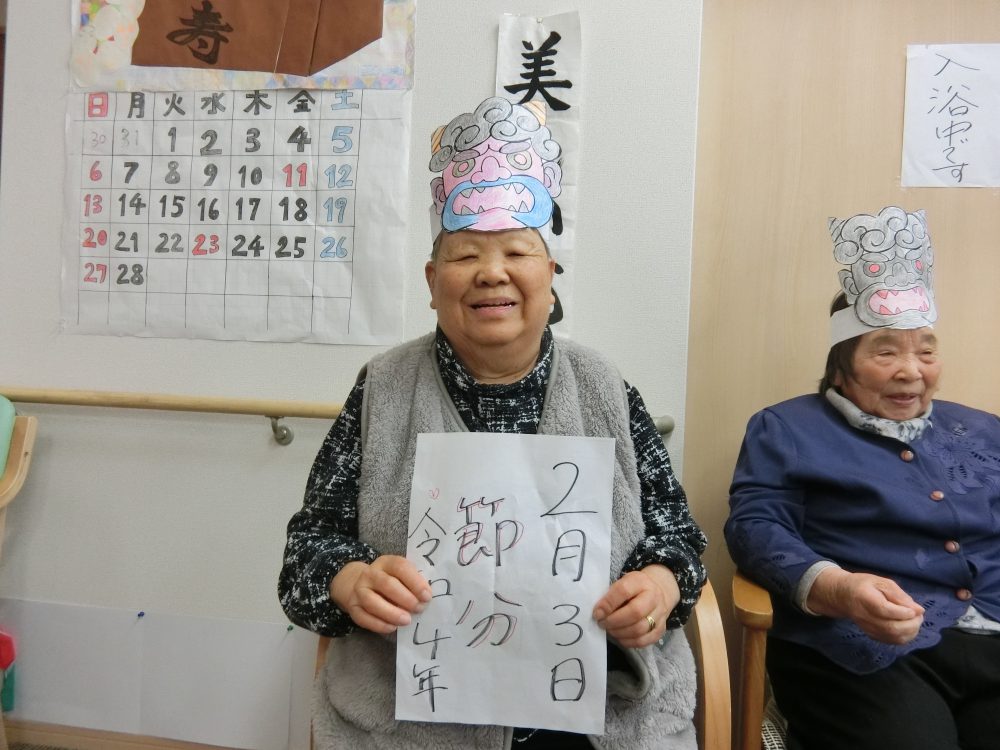 寿
日 月 火 水 木 金 土
30 31 1 2 3 4 5
6 7 8 9 10 11 12
13 14 15 16 17 18 19
20 21 22 23 24 25 26
27 28
美
入浴中です
2月3日
節分
令和4年